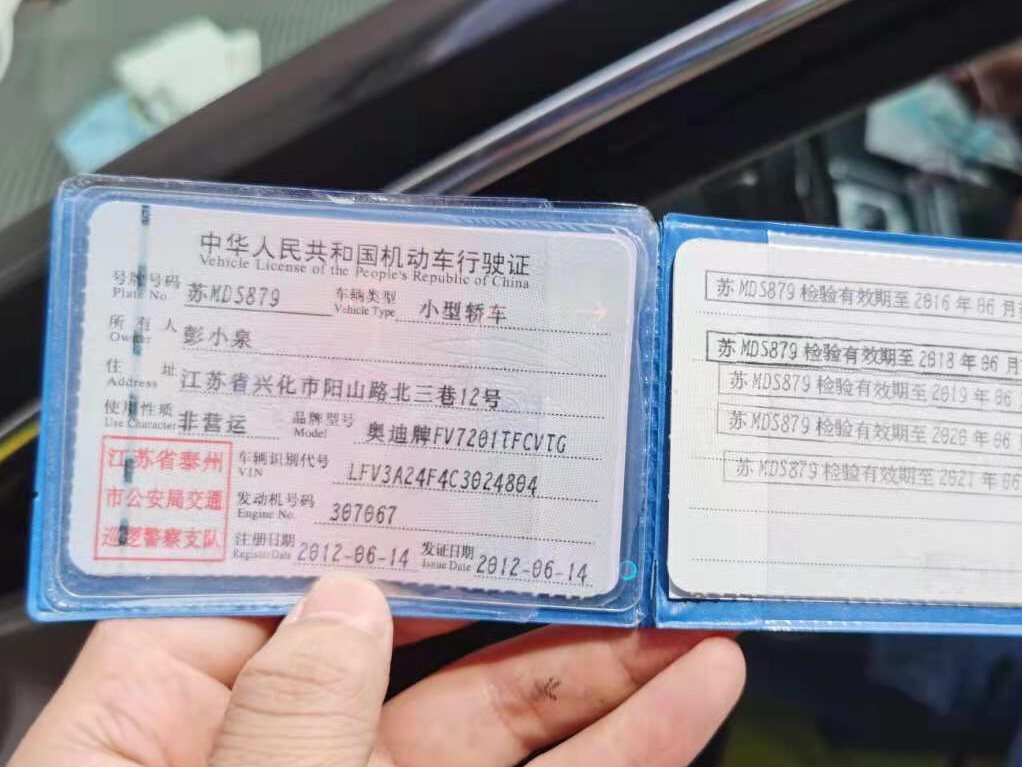 中华人民共和国机动车行驶证
Vehicle License of the People's Republic of China
号牌号码 苏MDS879 车辆类型 小型轿车
Plate No. Vehicle Type
所有人 彭小泉
Owner
住址 江苏省兴化市阳山路北三巷12号
Address
使用性质 非营运 品牌型号 奥迪牌FV7201TFCVTG
Use Character Model
江苏省泰州
市公安局交通
巡逻警察支队
车辆识别代号 LFV3A24F4C3024804
VIN
发动机号码 307067
Engine No.
注册日期 2012-06-14 发证日期 2012-06-14
Register Date Issue Date
苏MDS879 检验有效期至 2016 年 06 月
苏MDS879 检验有效期至 2018 年 06 月
苏MDS879 检验有效期至 2019 年 06
苏MDS879 检验有效期至 2020 年 06
苏MDS879 检验有效期至 2021 年 06